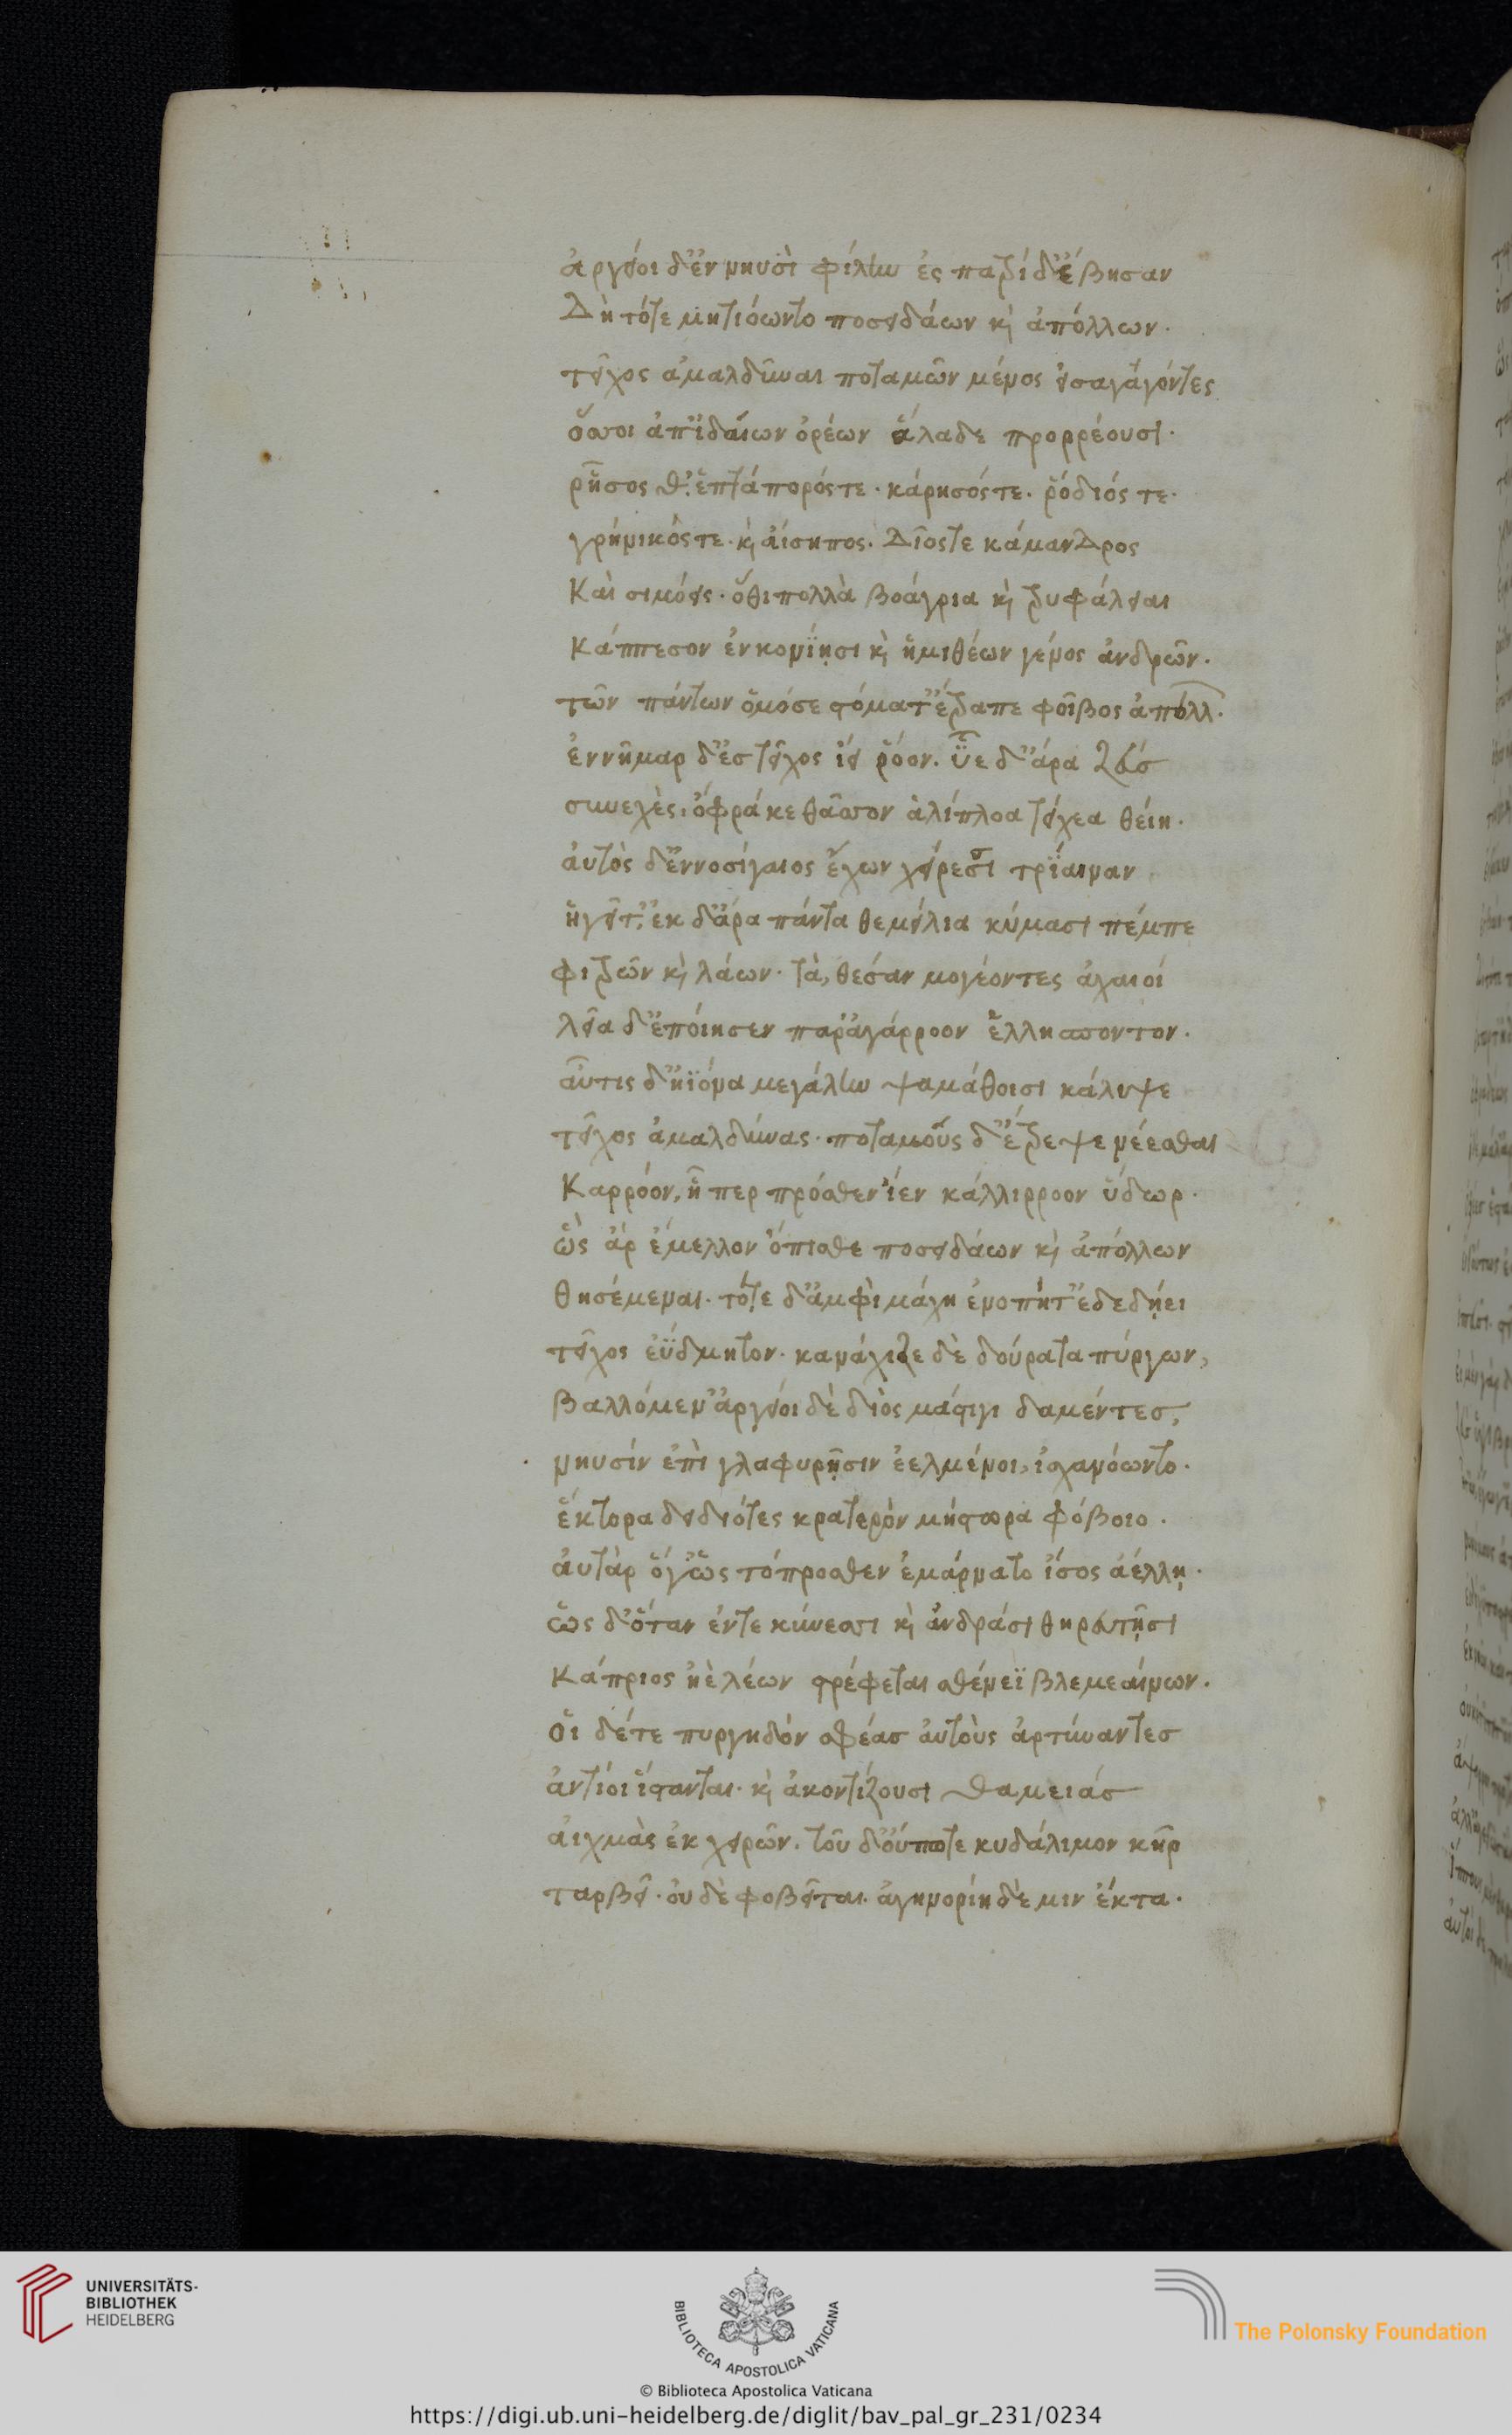 ἀργεῖοι δ' ἐν νηυσὶ φίλην ἐς πατρίδ' ἔβησαν
Δὴ τότε μητιόωντο ποσειδάων κ̀ ἀπόλλων·
τεῖχος ἀμαλδῦναι ποταμῶν μένος εἰσαγαγόντες
ὅσσοι ἀπ' ἰδαίων ὀρέων ἅλαδε προρρέουσι·
ρῆσος θ' ἑπτάπορός τε· κάρησός τε· ῥόδιός τε·
γρήνικός τε· κ̀ αἴσηπος· Δῖός τε κάμανδρος
Καὶ σιμόεις· ὅθι πολλὰ βοάγρια κ̀ τρυφάλειαι
Κάππεσον ἐν κονίῃσι κ̀ ἡμιθέων γένος ἀνδρῶν·
τῶν πάντων ὁμόσε στόματ' ἔτραπε φοῖβος ἀπόλλ·
ἐννῆμαρ δ' ἐς τεῖχος ἵει ῥόον· ὗε δ' ἄρα ζεύς
συνεχὲς· ὄφρά κε θᾶσσον ἁλίπλοα τείχεα θείη·
ἀυτὸς δ' ἐννοσίγαιος ἔχων χείρεσσι τρίαιναν
ἡγεῖτ'· ἐκ δ' ἄρα πάντα θεμείλια κύμασι πέμπε
φιτρῶν κ̀ λάων· τὰ, θέσαν μογέοντες ἀχαιοί
λεῖα δ' ἐποίησεν παρ' ἀγάρροον ἑλλήσποντον·
αὖτις δ' ἠϊόνα μεγάλην ψαμάθοισι κάλυψε
τεῖχος ἀμαλδύνας· ποταμοὺς δ' ἔτρεψε νέεσθαι
Καρρόον, ᾗ περ πρόσθεν ἵεν κάλλιρροον ὕδωρ·
ὣς ἄρ ἔμελλον ὄπισθε ποσειδάων κ̀ ἀπόλλων
θησέμεναι· τότε δ' ἀμφὶ μάχη ἐνοπήτ' ἐδεδήει
τεῖχος ἐΰδμητον· κανάχιζε δὲ δούρατα πύργων,
βαλλόμεν' ἀργεῖοι δὲ διὸς μάστιγι δαμέντες,
νηυσίν ἐπὶ γλαφυρῇσιν ἐελμένοι, ἰσχανόωντο·
ἕκτορα δειδιότες κρατερὸν μήστωρα φόβοιο·
ἀυτὰρ ὅγ' ὣς τόπροσθεν ἐμάρνατο ἶσος ἀέλλῃ·
ὣς δ' ὅταν ἔντε κύνεσσι κ̀ ἀνδράσι θηρευτῇσι
Κάπριος ἠὲ λέων στρέφεται σθένεϊ βλεμεαίνων·
Οἵ δέτε πυργηδὸν σφέας ἀυτοὺς ἀρτύναντες
ἀντίοι ἵστανται· κ̀ ἀκοντίζουσι θαμειάς
αἰχμὰς ἐκ χειρῶν· τοῦ δ' οὔποτε κυδάλιμον κῆρ
ταρβεῖ· ὀυδὲ φοβεῖται· ἀγηνορίη δὲ μιν ἔκτα·
UNIVERSITÄTS-
BIBLIOTHEK
HEIDELBERG
BIBLIOTECA APOSTOLICA VATICANA
The Polonsky Foundation
© Biblioteca Apostolica Vaticana
https://digi.ub.uni-heidelberg.de/diglit/bav_pal_gr_231/0234